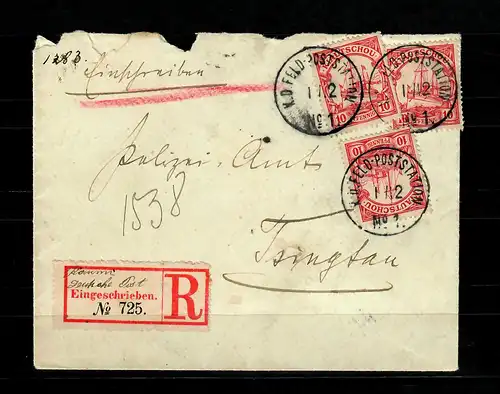 1283.
Einschreiben
K.D. FELD-POSTSTATION
1 12
No 1.
KIAUTSCHOU
10
10
K.D. FELD-POSTSTATION
1 12
No 1.
10
10 PFENNIG 10
KIAUTSCHOU
K.D. FELD-POSTSTATION
1 12
No 1.
Polizei-Amt
1538
Tsingtau
Deutsche Post
Eingeschrieben.
No 725.
R